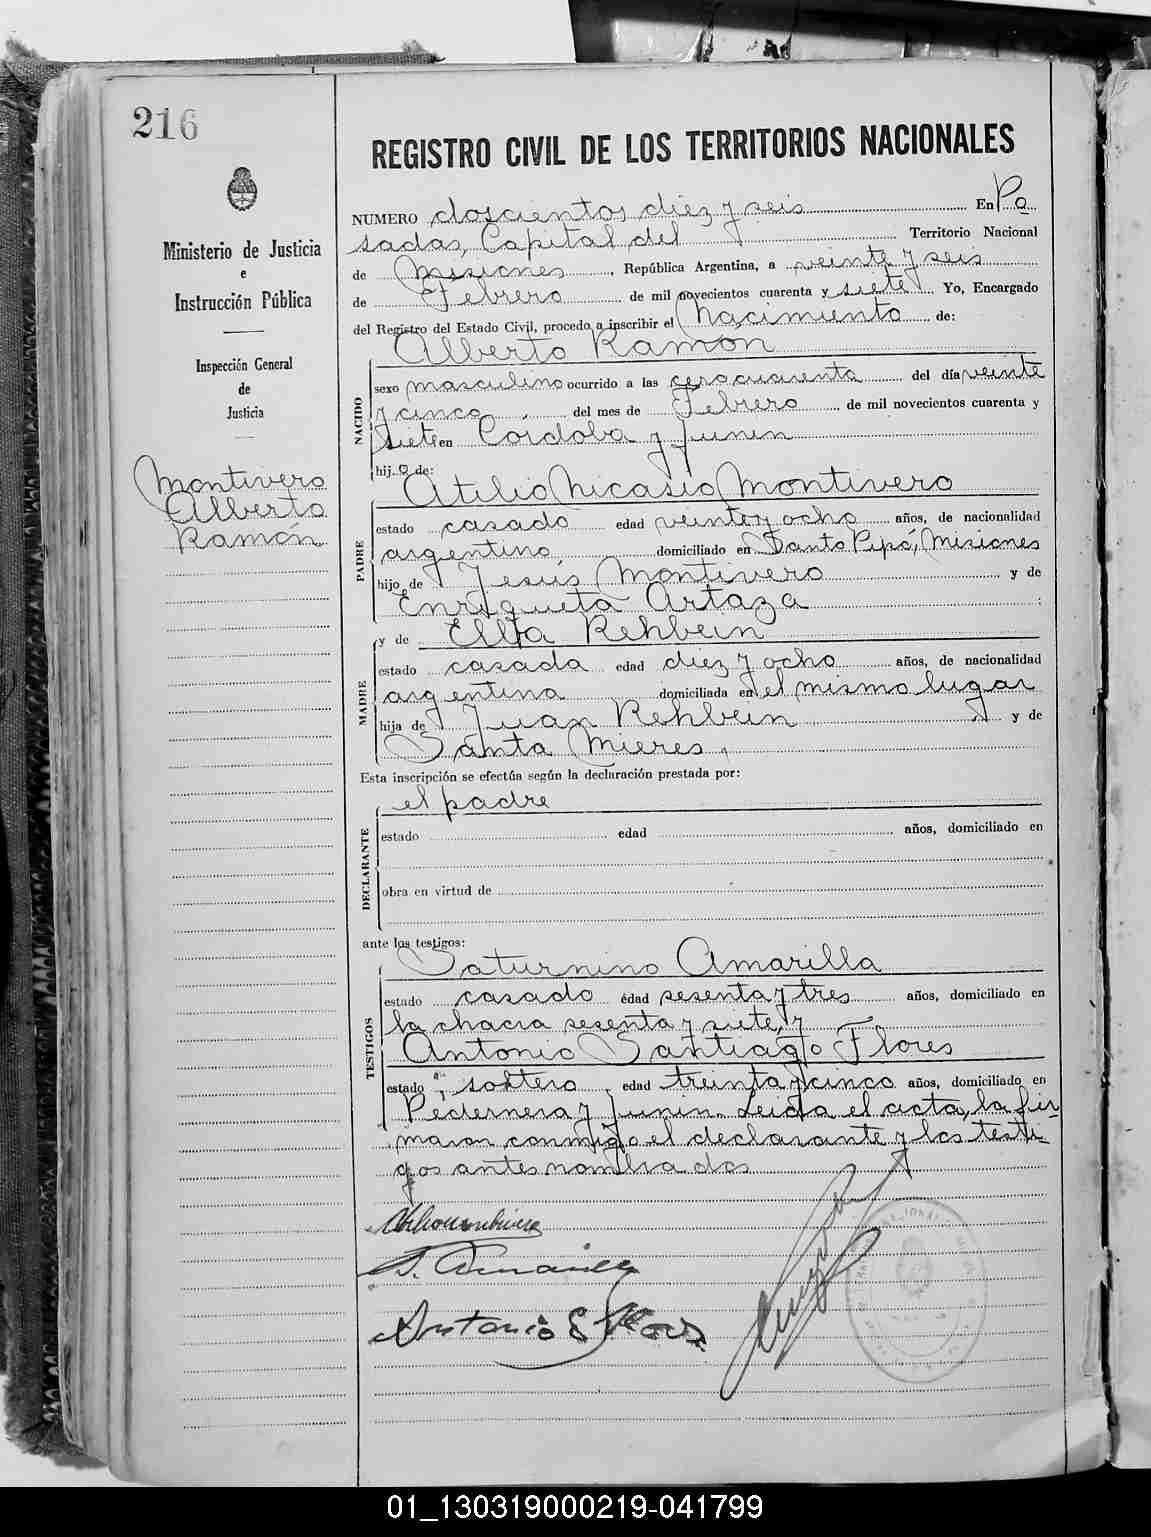 216
REGISTRO CIVIL DE LOS TERRITORIOS NACIONALES
Ministerio de Justicia
e
Instrucción Pública
Inspección General
de
Justicia
Montivero
Alberto
Ramón
NUMERO doscientos diez y seis En Po
sadas, Capital del Territorio Nacional
de Misiones, República Argentina, a veinte y seis
de Febrero de mil novecientos cuarenta y siete Yo, Encargado
del Registro del Estado Civil, procedo a inscribir el Nacimiento de:
Alberto Ramón
NACIDO
sexo masculino ocurrido a las cero cuarenta del día veinte
y cinco del mes de Febrero de mil novecientos cuarenta y
siete en Córdoba y Junin
hijo de:
Atilio Nicasio Montivero
PADRE
estado casado edad veinte y ocho años, de nacionalidad
argentino domiciliado en Santo Pipó, Misiones
hijo de Jesús Montivero y de
Enriqueta Artaza
y de Elba Rehbein
MADRE
estado casada edad diez y ocho años, de nacionalidad
argentina domiciliada en el mismo lugar
hija de Juan Rehbein y de
Santa Mieres
Esta inscripción se efectúa según la declaración prestada por:
el padre
DECLARANTE
estado edad años, domiciliado en
obra en virtud de
ante los testigos:
Saturnino Amarilla
TESTIGOS
estado casado edad sesenta y tres años, domiciliado en
la chacra sesenta y siete, y
Antonio Santiago Flores
estado soltero, edad treinta y cinco años, domiciliado en
Pedernera y Junin. Leida el acta, la fir-
maron conmigo el declarante y los testi-
gos antes nombrados
S. Amarilla
Antonio S Flores
01_130319000219-041799